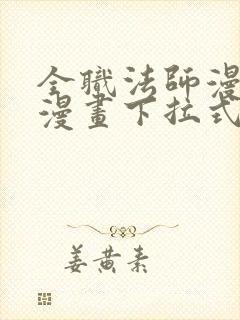 全職法師漫
漫畫下拉式
姜黄素